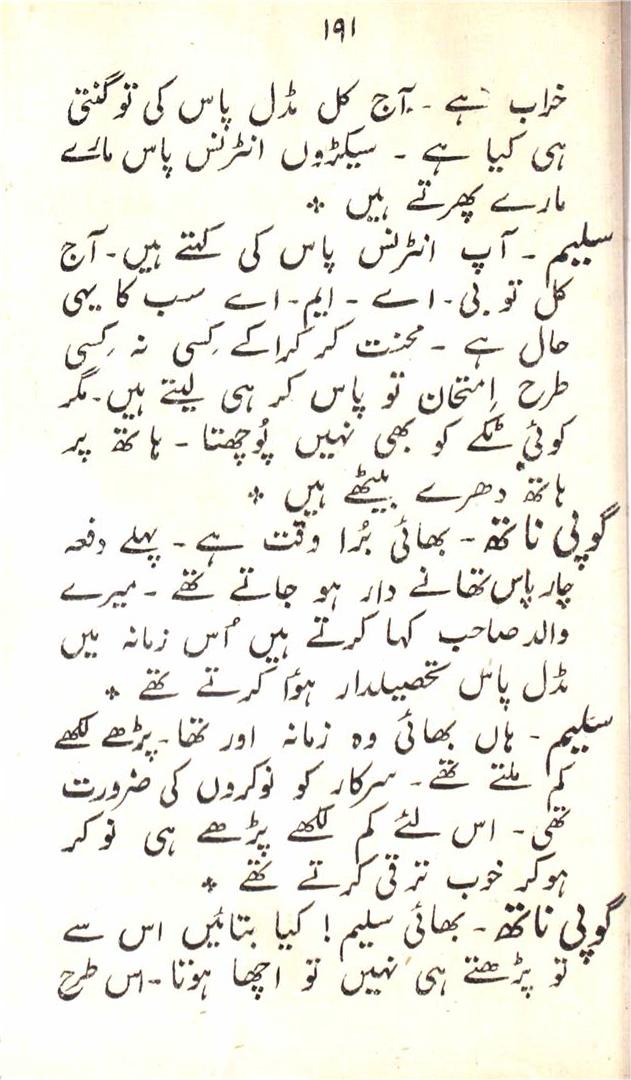 ۱۹۱
خراب ہے ۔ آج کل مڈل پاس کی تو گنتی
ہی کیا ہے ۔ سیکڑوں انٹرنس پاس مارے
مارے پھرتے ہیں ٭
سلیم ۔ آپ انٹرنس پاس کی کہتے ہیں ۔ آج
کل تو بی ۔ اے ۔ ایم ۔ اے سب کا یہی
حال ہے ۔ محنت کر کرا کے کِسی نہ کِسی
طرح اِمتحان تو پاس کر ہی لیتے ہیں ۔ مگر
کوئی ٹکے کو بھی نہیں پُوچھتا ۔ ہاتھ پر
ہاتھ دھرے بیٹھے ہیں ٭
گوپی ناتھ ۔ بھائی بُرا وقت ہے ۔ پہلے دفعہ
چار پاس تھانے دار ہو جاتے تھے ۔ میرے
والد صاحب کہا کرتے ہیں اُس زمانہ میں
مڈل پاس تحصیلدار ہؤا کرتے تھے ٭
سلیم ۔ ہاں بھائی وہ زمانہ اور تھا ۔ پڑھے لکھے
کم ملتے تھے ۔ سرکار کو نوکروں کی ضرورت
تھی ۔ اس لئے کم لکھے پڑھے ہی نوکر
ہوکر خوب ترقی کرتے تھے ٭
گوپی ناتھ ۔ بھائی سلیم ! کیا بتائیں اس سے
تو پڑھتے ہی نہیں تو اچھا ہوتا ۔ اس طرح